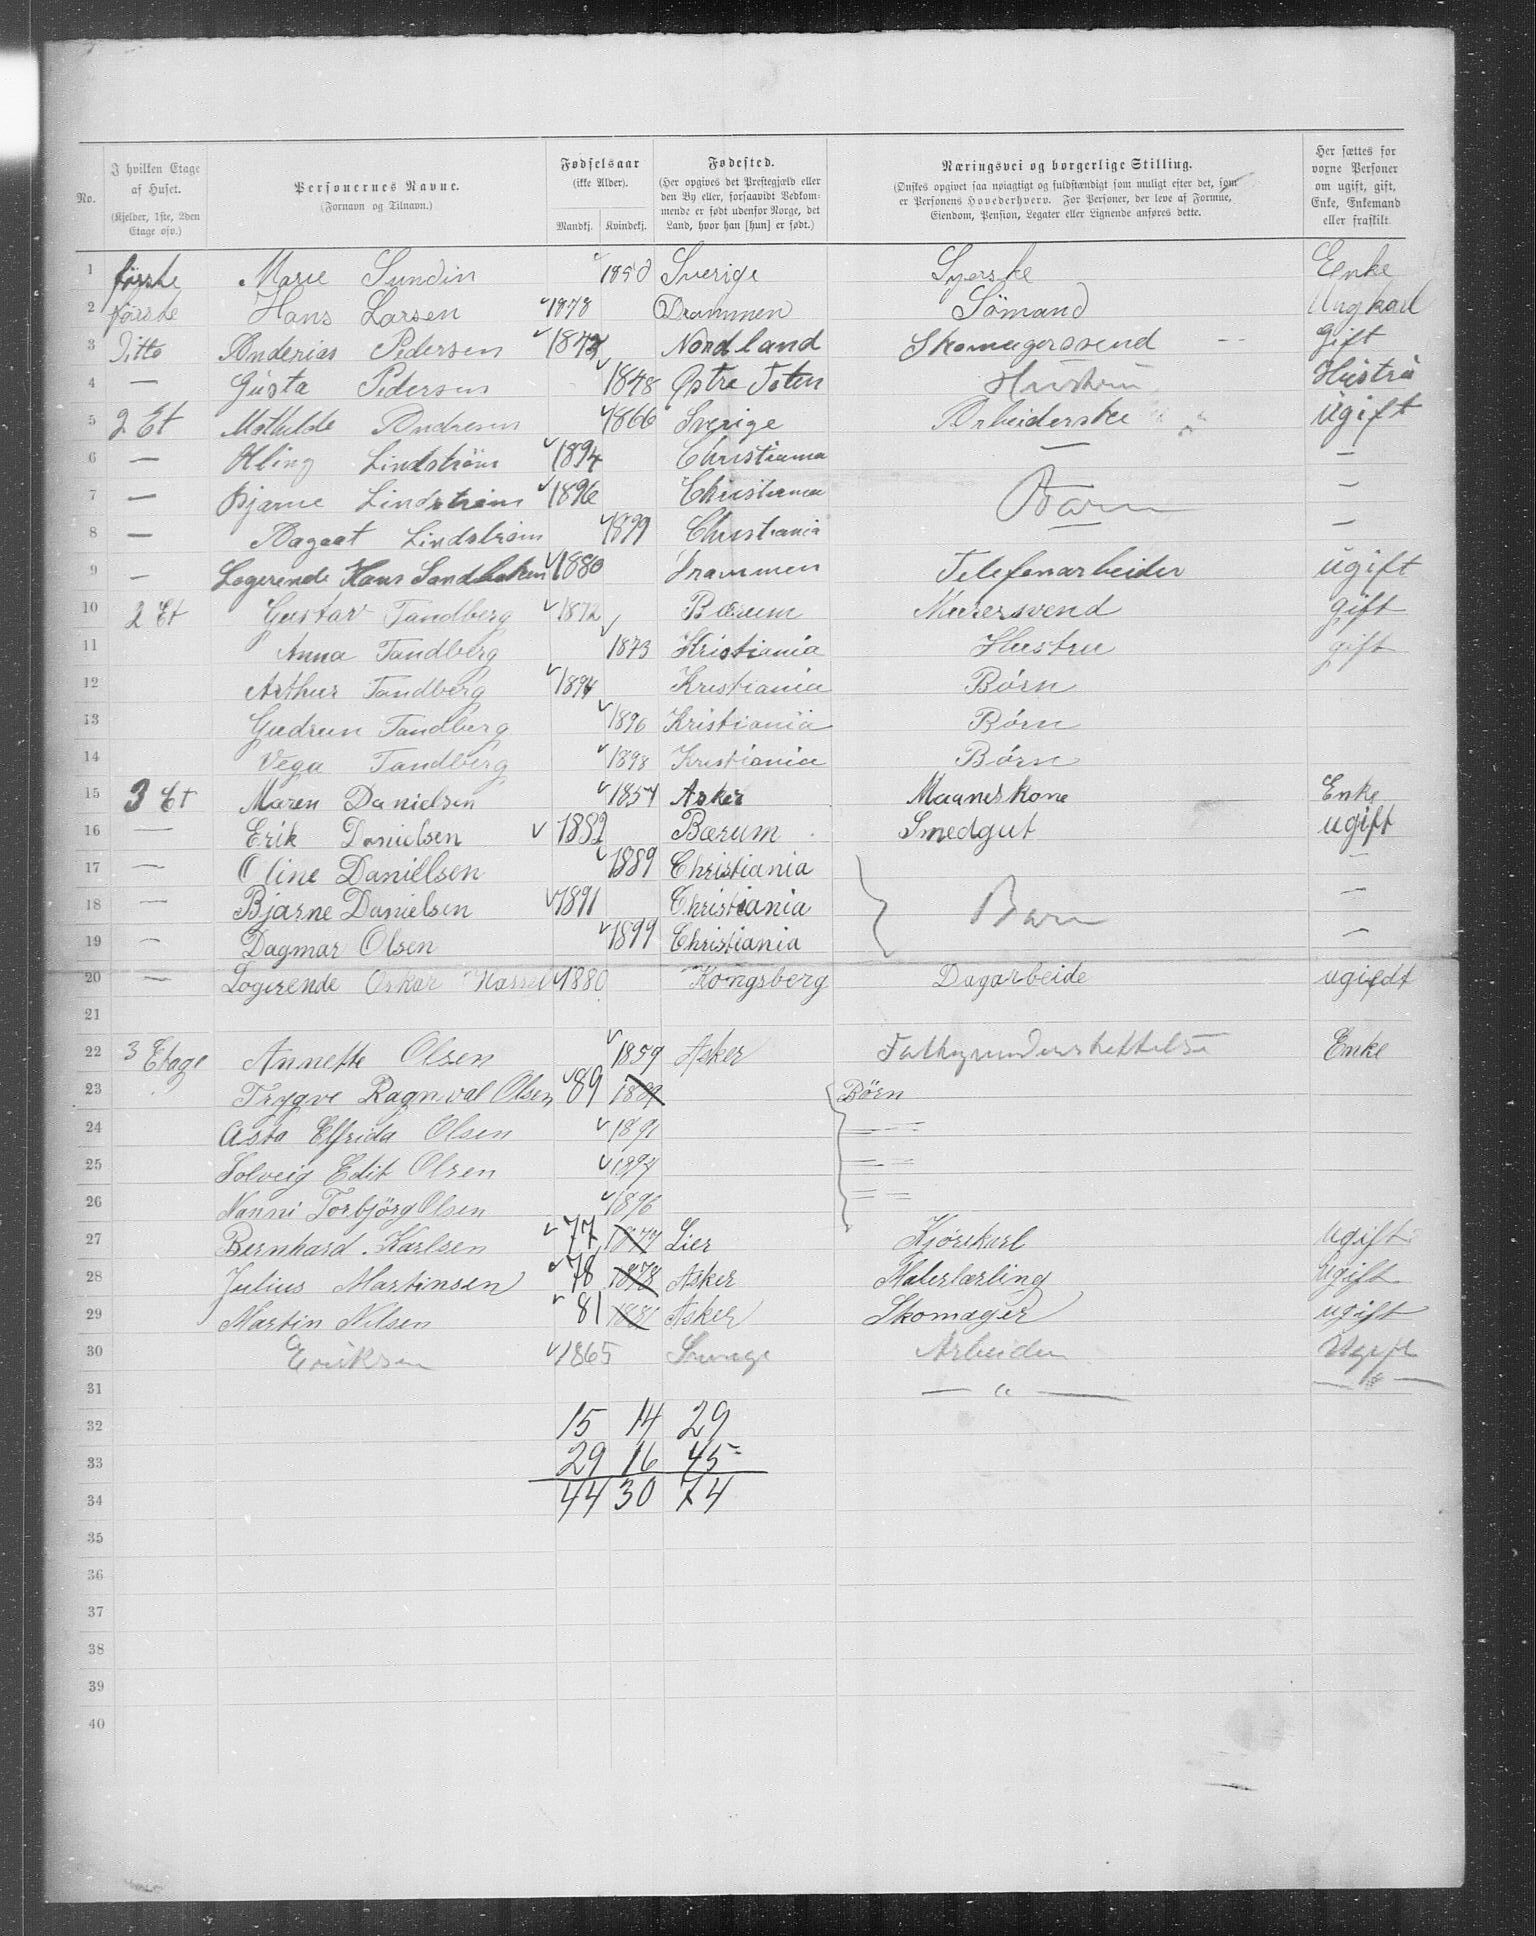 No. | I hvilken Etage af Huset. (Kjelder, 1ste, 2den Etage osv.) | Personernes Navne. (Fornavn og Tilnavn.) | Fødselsaar (ikke Alder). Mandkj. Kvindekj. | Fødested. (Her opgives det Prestegjæld eller den By eller, forsaavidt Vedkommende er født udenfor Norge, det Land, hvor han [hun] er født.) | Næringsvei og borgerlige Stilling. (Ønskes opgivet saa nøiagtigt og fuldstændigt som muligt efter det, som er Personens Hovederhverv. For Personer, der leve af Formue, Eiendom, Pension, Legater eller Lignende anføres dette.) | Her sættes for voxne Personer om ugift, gift, Enke, Enkemand eller fraskilt.
1 første Marie Sundin 1850 Sverige Syerske Enke
2 første Hans Larsen 1878 Drammen Sömand Ungkarl
3 Ditto Anderias Pedersen 1842 Nordland Skomagersvend gift
4 — Gusta Pedersen 1848 Østre Toten Hustru Hustru
5 2 Et Mathilde Andresen 1866 Sverige Arbeiderske ugift
6 — Lindstrøm 1894 Christiania — —
7 — Bjarne Lindstrøm 1896 Christiania Barn —
8 — Lindstrøm 1899 Christiania — —
9 — Logerende Hans Sandbaken 1880 Drammen Telefonarbeider ugift
10 2 Et Gustav Tandberg 1872 Bærum Murersvend gift
11 Anna Tandberg 1873 Kristiania Hustru gift
12 Arthur Tandberg 1894 Kristiania Börn
13 Gudrun Tandberg 1896 Kristiania Börn
14 Vega Tandberg 1898 Kristiania Börn
15 3 Et Maren Danielsen 1857 Asker Maaneskone Enke
16 — Erik Danielsen 1882 Bærum Smedgut ugift
17 — Oline Daniëlsen 1889 Christiania —
18 — Bjarne Danielsen 1891 Christiania Barn —
19 — Dagmar Olsen 1899 Christiania —
20 — Logerende Oskar Hassel 1880 Kongsberg Dagarbeide ugiedt
21
22 3 Etage Annette Olsen 1859 Asker Enke
23 Trygve Ragnval Olsen 89 1889 Börn
24 Asta Elfrida Olsen 1891 — —
25 Solveig Edit Olsen 1894 — —
26 Nanni Torbjörg Olsen 1896 — —
27 Bernhard Karlsen 77 1877 Lier Kjörekarl ugift
28 Julius Martinsen 78 1878 Asker Malerlærling ugift
29 Martin Nilsen 81 1881 Asker Skomager ugift
30 Eriksen 1865 Arbeider Ugift
31 — " — — " —
32 15 14 29
33 29 16 45
34 44 30 74
35
36
37
38
39
40